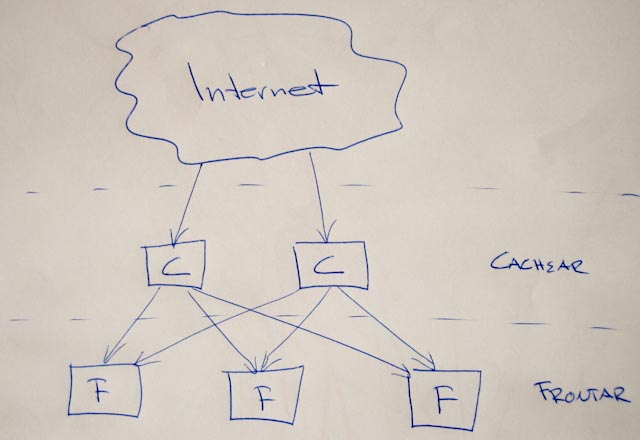 Internet
C
C
CACHEAR
F
F
F
FRONTAR